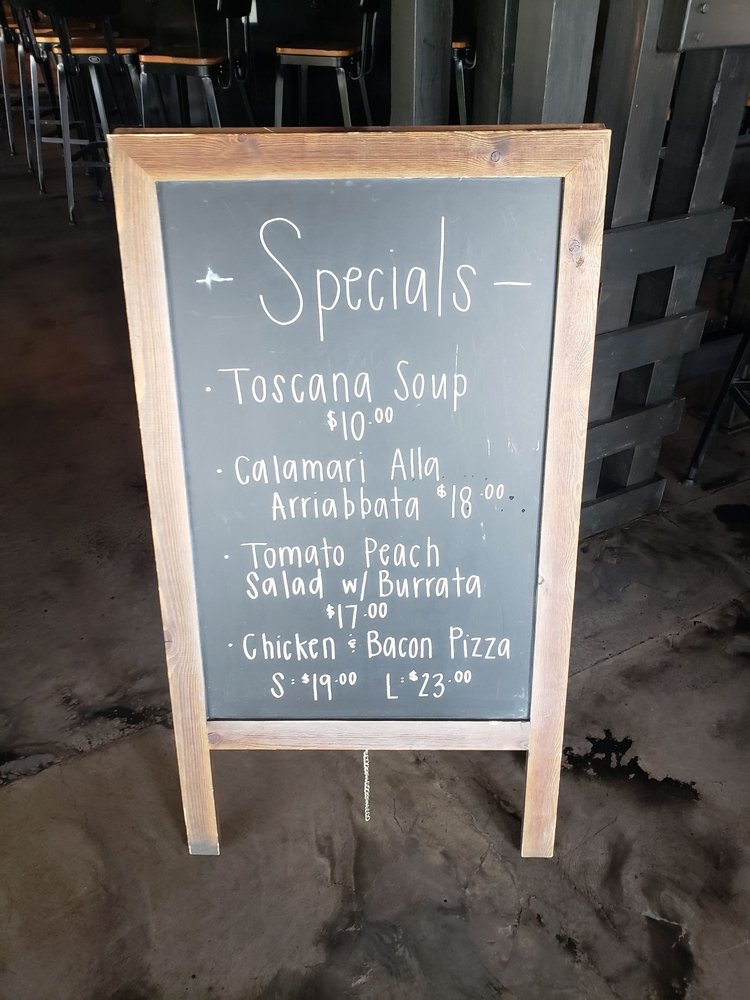 - Specials -
· Toscana Soup
$10.00
· Calamari Alla
Arriabbata $18.00
· Tomato Peach
Salad w/ Burrata
$17.00
· Chicken & Bacon Pizza
S: $19.00 L: $23.00